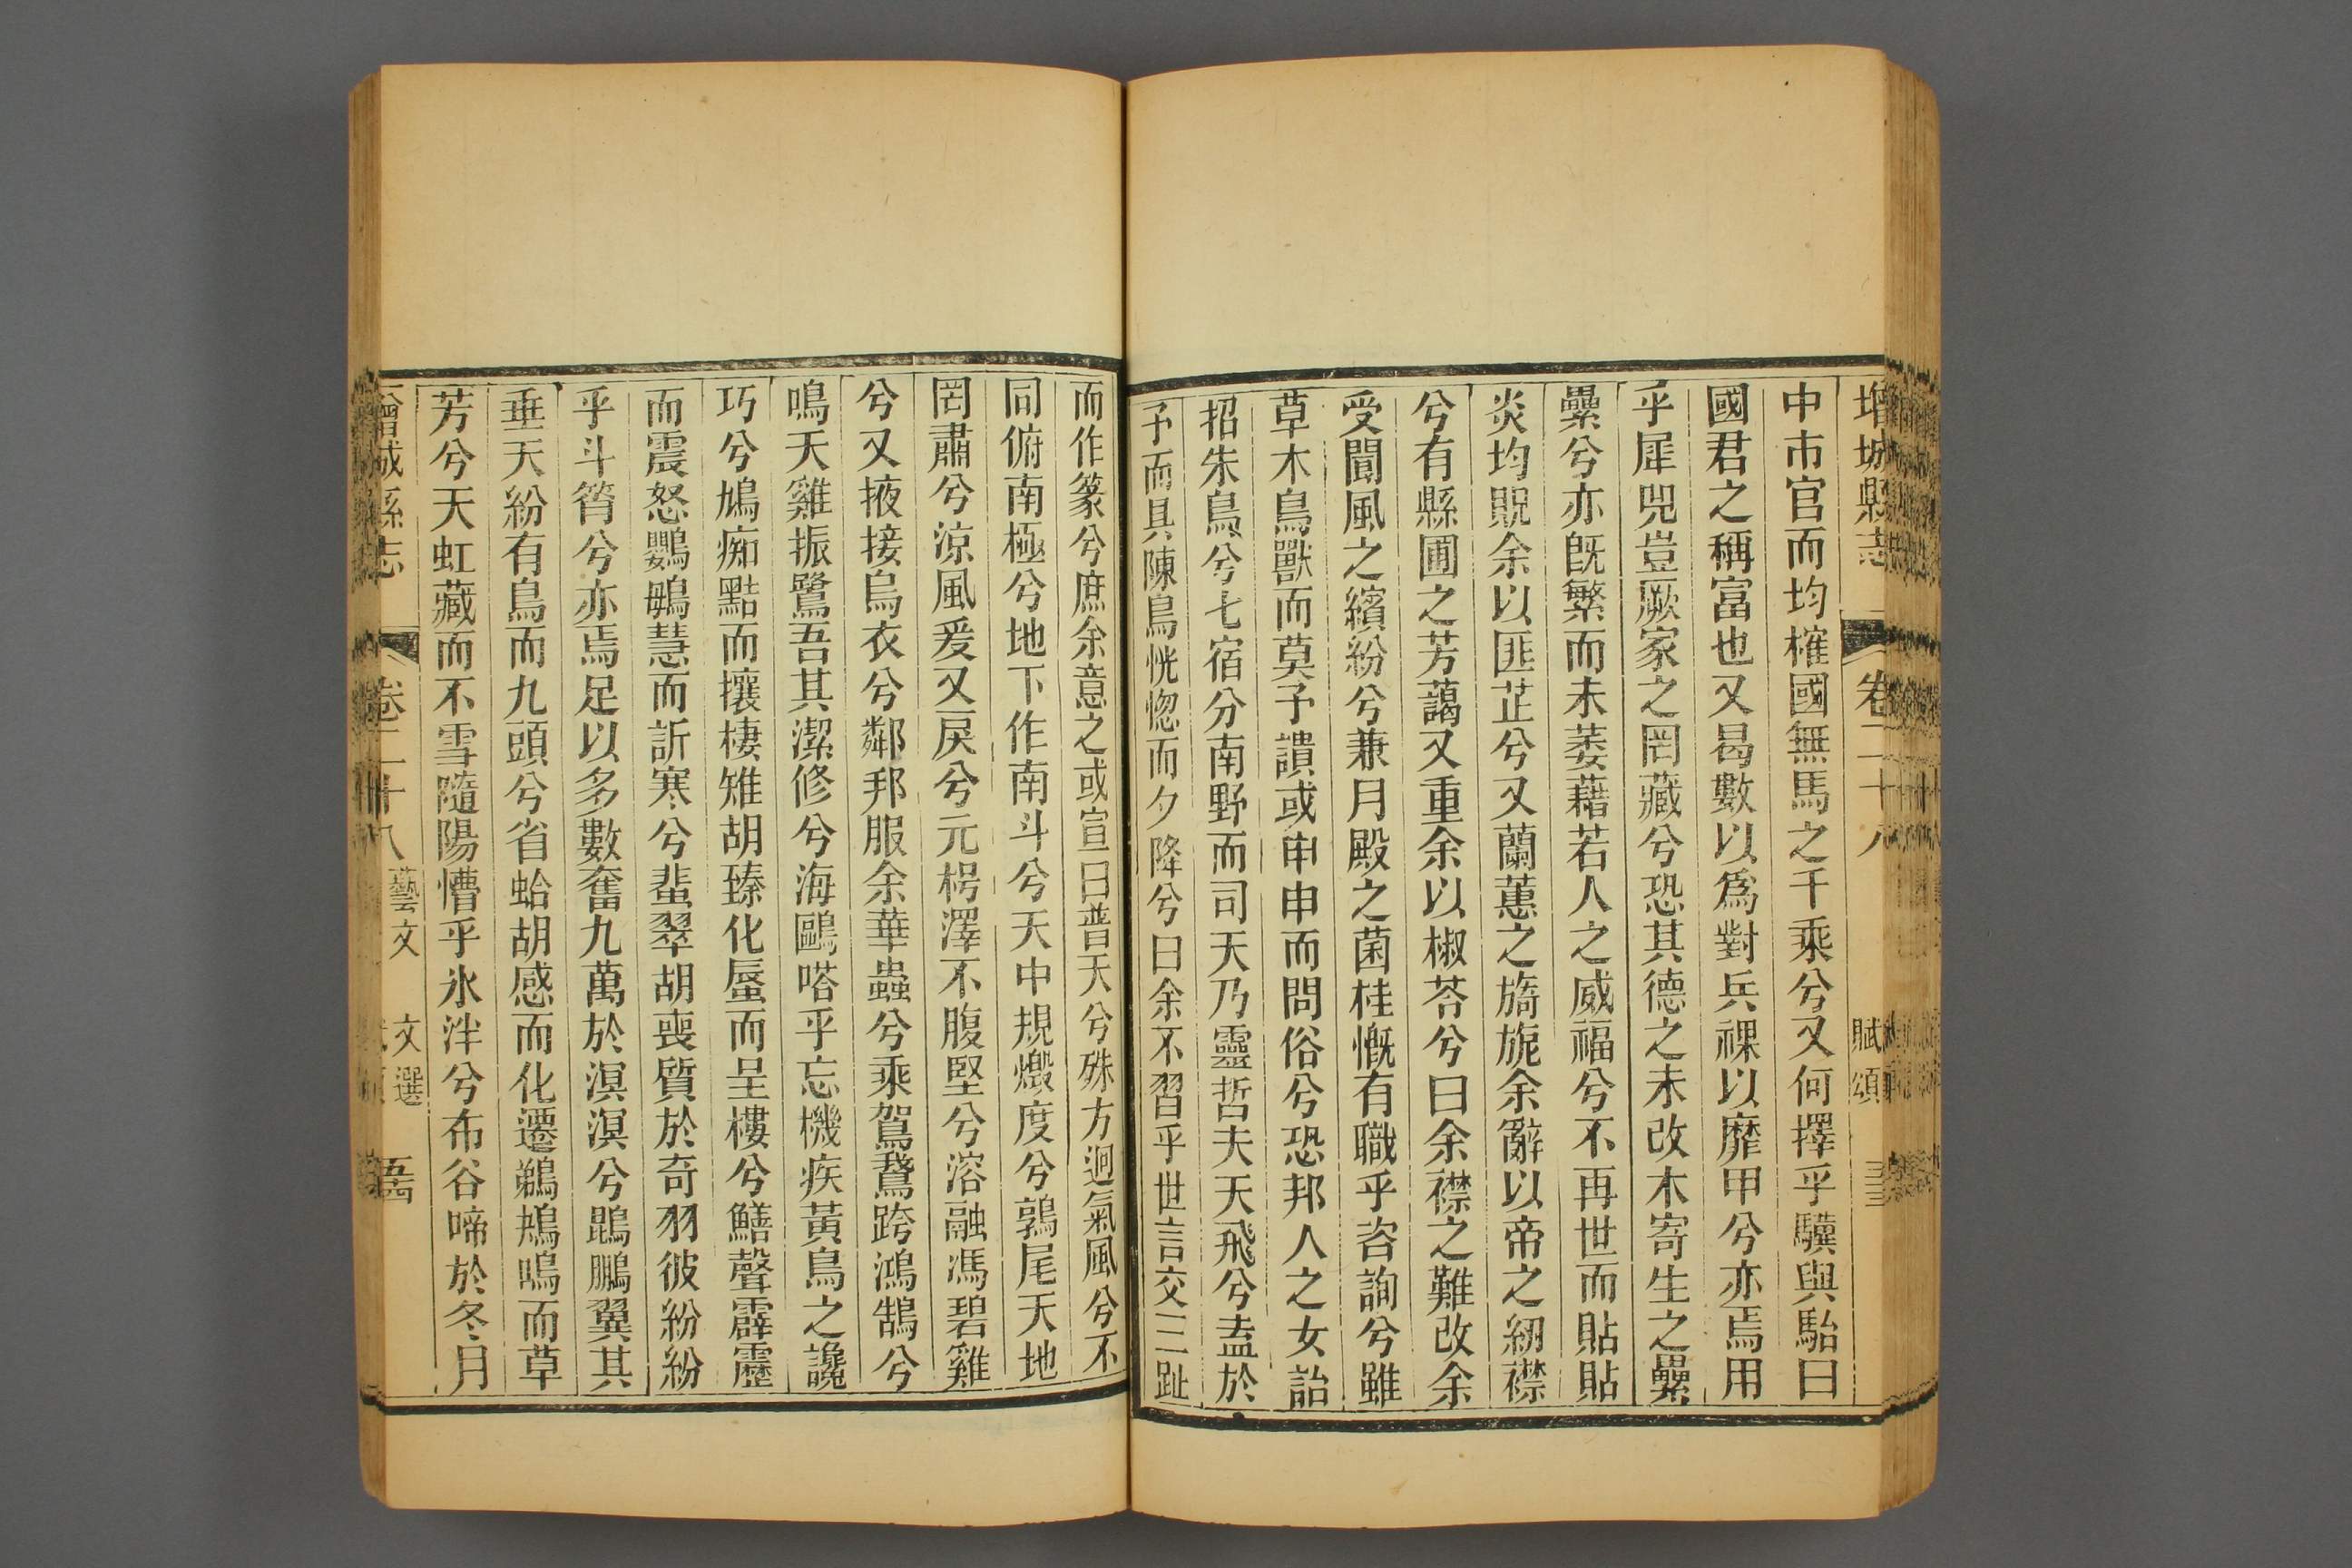 增城縣志 卷二十八 賦頌 三三
中市官而均榷國無馬之千乘兮又何擇乎驥與駘曰
國君之稱富也又曷數以爲對兵祼以靡甲兮亦焉用
乎犀兕豈厥家之罔藏兮恐其德之未改木寄生之纍
纍兮亦既繁而未萎藉若人之威福兮不再世而貼貼
炎均貺余以匪芷兮又蘭蕙之旖旎余辭以帝之紉襟
兮有縣圃之芳藹又重余以椒荅兮曰余襟之難改余
受聞風之繽紛兮兼月殿之菌桂慨有職乎咨詢兮雖
草木鳥獸而莫予讀或申申而問俗兮恐邦人之女詒
招朱鳥兮七宿分南野而司天乃靈哲夫天飛兮盍於
予而具陳鳥恍惚而夕降兮曰余不習乎世言交三趾
而作篆兮庶余意之或宣曰普天兮殊方迴氣風兮不
同俯南極兮地下作南斗兮天中規爓度兮鶉尾天地
罔肅兮涼風爰又戾兮元枵澤不腹堅兮溶融馮碧雞
兮又掖接烏衣兮鄰邦服余華蟲兮乘鴐鵞跨鴻鵠兮
鳴天雞振鷺吾其潔修兮海鷗嗒乎忘機疾黃鳥之讒
巧兮鳩痴黠而攘棲雉胡臻化蜃而呈樓兮鱔聲霹靂
而震怒鸚鵡慧而訢寒兮蜚翠胡喪質於奇羽彼紛紛
乎斗筲兮亦焉足以多數奮九萬於溟溟兮鵾鵬翼其
垂天紛有鳥而九頭兮省蛤胡感而化遷鵜鴂鳴而草
芳兮天虹藏而不雪隨陽慒乎氷泮兮布谷啼於冬月
增城縣志 卷二十八 藝文 文選